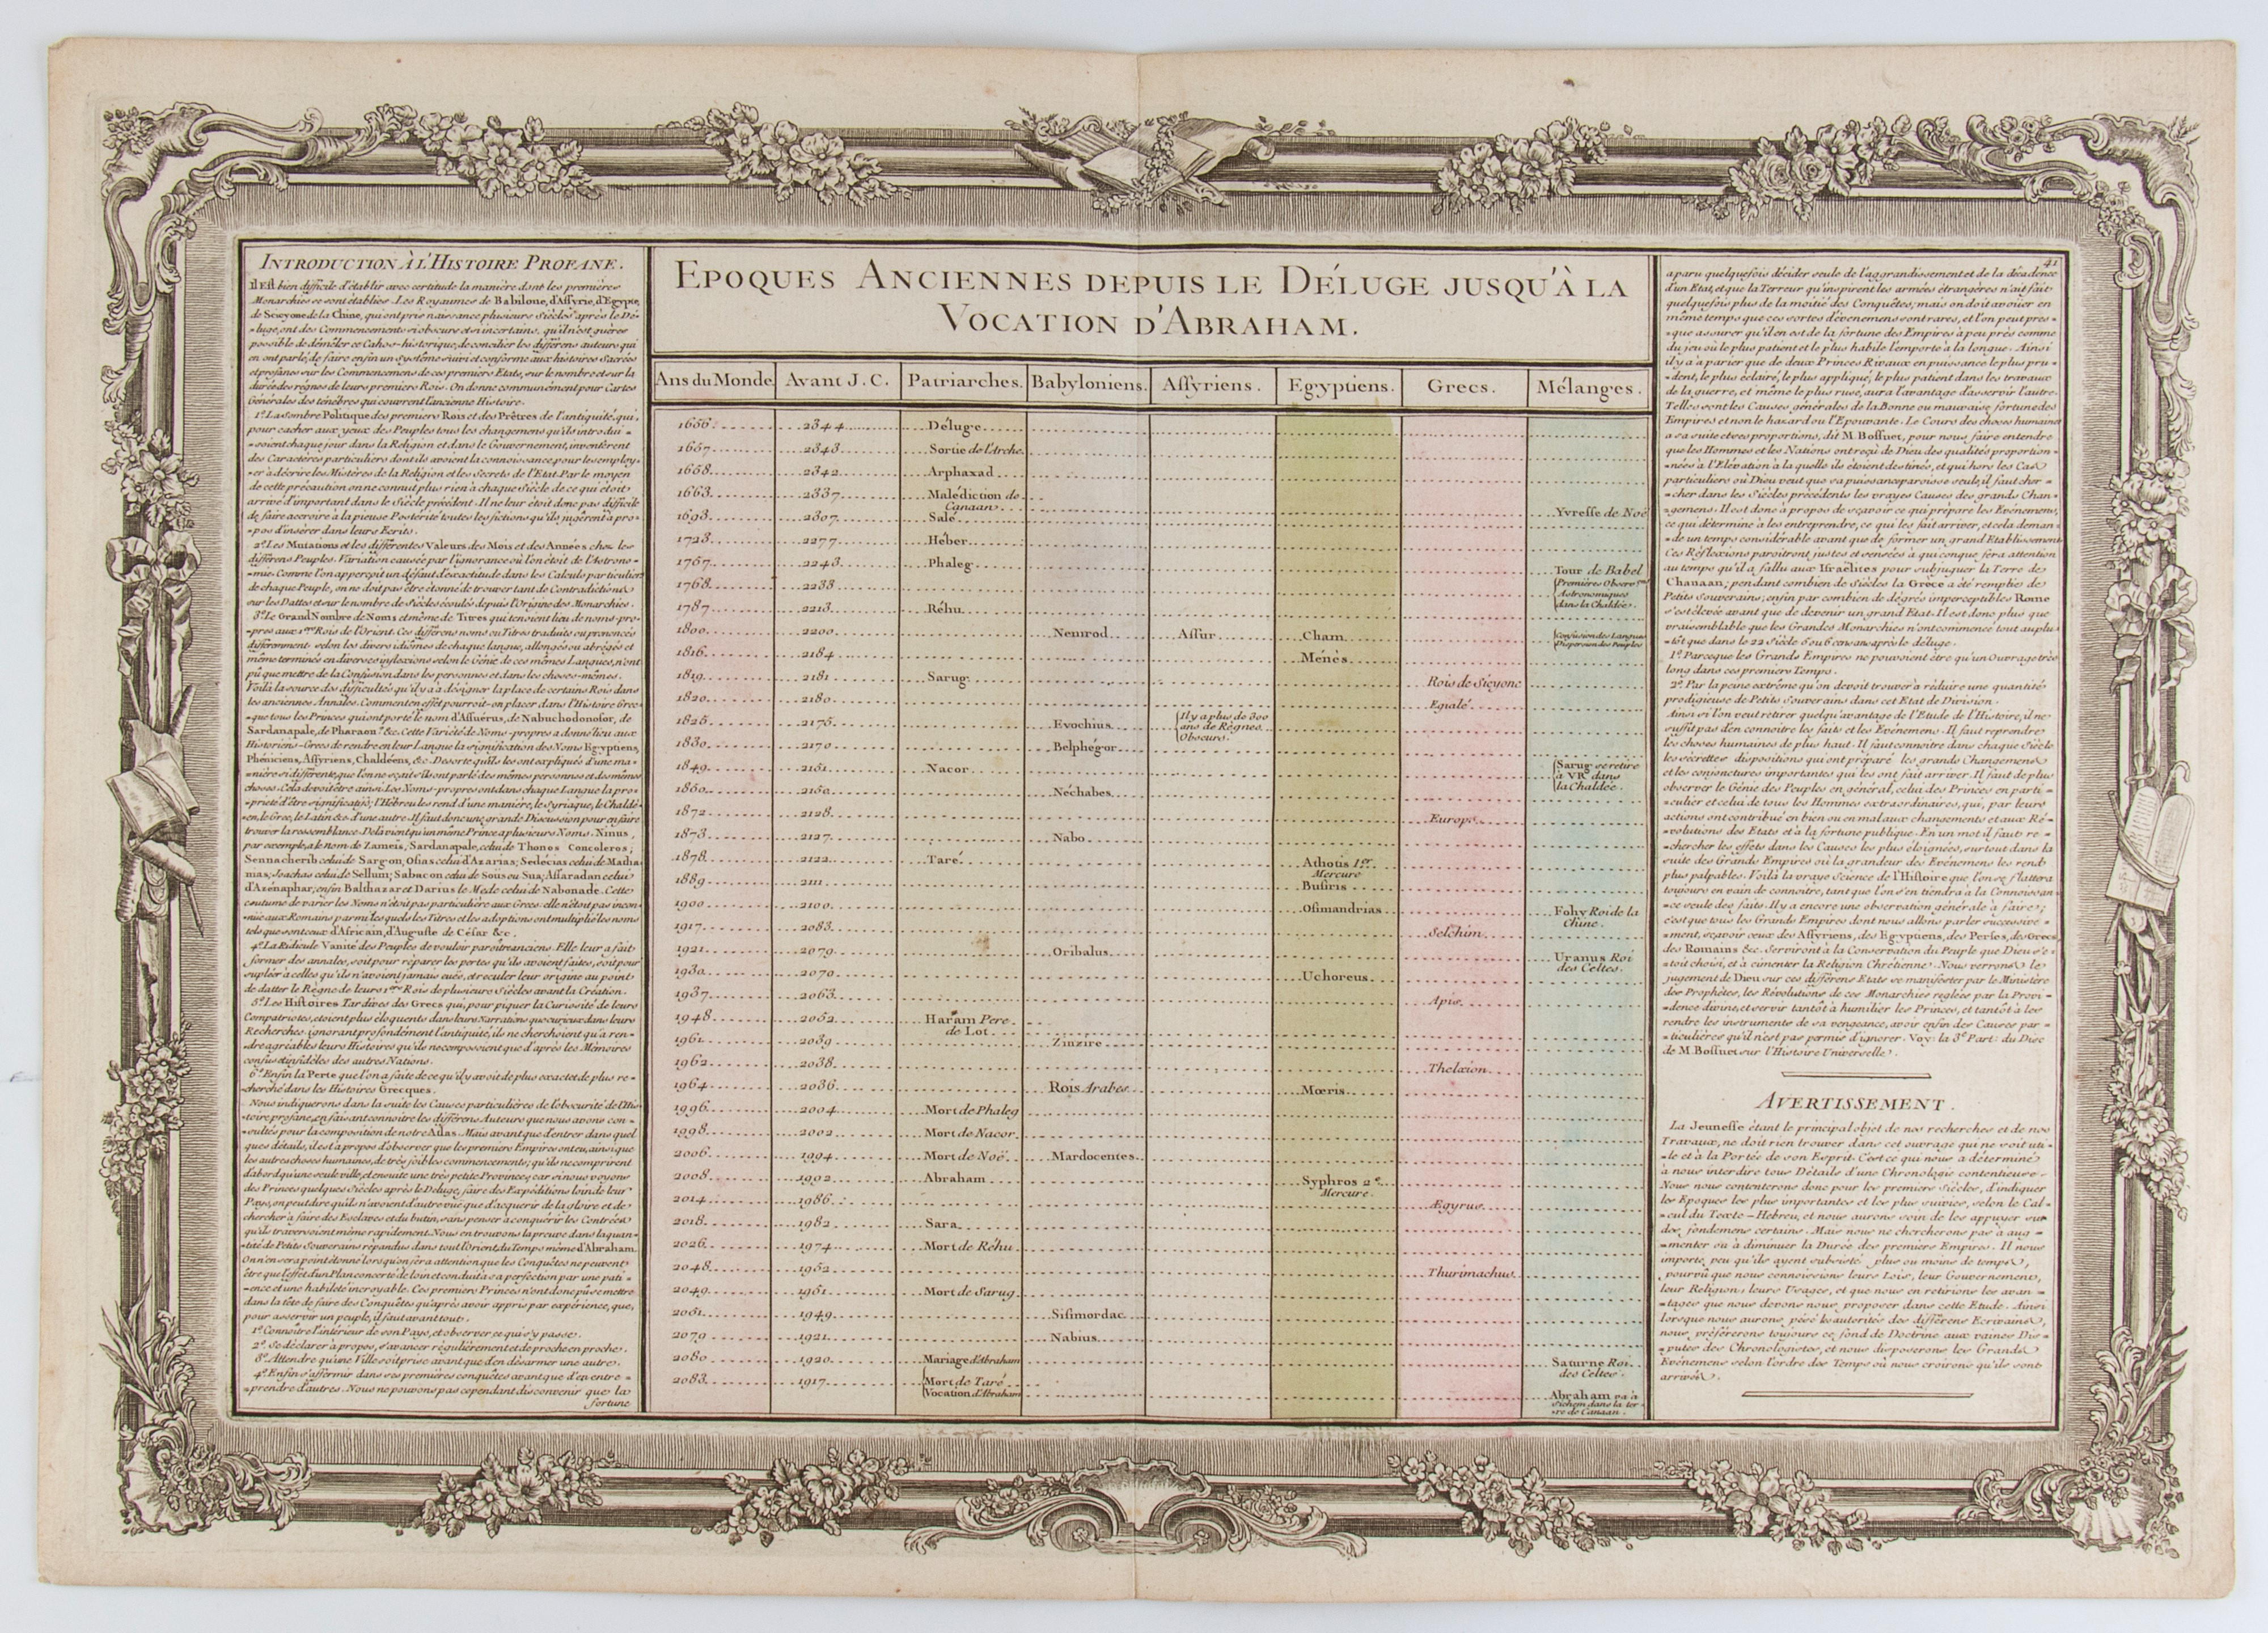 INTRODUCTION À L'HISTOIRE PROFANE.
Il Est bien difficile d'établir avec certitude la manière dont les premières
Monarchies se sont établies. Les Royaumes de Babilone, d'Assyrie, d'Egypte,
de Scicyone de la Chine, qui ont pris naissance plusieurs Siècles après le Dé-
-luge, ont des Commencements si obscurs et si incertains, qu'il n'est guères
possible de démêler ce Cahos-historique, de concilier les différens auteurs qui
en ont parlé, de faire enfin un système suivi et conforme aux histoires Sacrées
et profanes sur les Commencemens de ces premiers Etats, sur le nombre et sur la
durée des règnes de leurs premiers Rois. On donne communément pour Cartes
Générales des ténèbres qui couvrent l'ancienne Histoire.
1.º La Sombre Politique des premiers Rois et des Prêtres de l'antiquité, qui,
pour cacher aux yeux des Peuples tous les changemens qu'ils introdui-
-soient chaque jour dans la Religion et dans le Gouvernement, inventèrent
des Caractères particuliers dont ils avoient la connoissance, pour les employ-
-er à décrire les Mistères de la Religion et les Secrets de l'Etat. Par le moyen
de cette précaution on ne connut plus rien à chaque Siècle de ce qui étoit
arrivé d'important dans le Siècle précédent. Il ne leur étoit donc pas difficile
de faire accroire à la pieuse Postérité toutes les fictions qu'ils jugèrent à pro-
-pos d'insérer dans leurs Ecrits.
2.º Les Mutations et les différentes Valeurs des Mois et des Années chez les
différens Peuples. Variation causée par l'ignorance où l'on étoit de l'Astrono-
-mie. Comme l'on apperçoit un défaut d'exactitude dans les Calculs particuliers
de chaque Peuple, on ne doit pas être étonné de trouver tant de Contradictions
sur les Dattes et sur le nombre de Siècles écoulés depuis l'Origine des Monarchies.
3.º Le Grand Nombre de Noms et même de Titres qui tenoient lieu de noms-pro-
-pres aux 1.ers Rois de l'Orient. Ces différens noms ou Titres traduits ou prononcés
différemment selon les divers idiômes de chaque langue, allongés ou abrégés et
même terminés en diverses inflexions selon le Génie de ces mêmes Langues, n'ont
pû que mettre de la Confusion dans les personnes et dans les choses-mêmes.
Voilà la source des difficultés qu'il y a à désigner la place de certains Rois dans
les anciennes Annales. Comment en effet pourroit-on placer dans l'Histoire Grec-
-que tous les Princes qui ont porté le nom d'Assuerus, de Nabuchodonosor, de
Sardanapale, de Pharaon &c. Cette Variété de Noms-propres a donné lieu aux
Historiens-Grecs de rendre en leur Langue la signification des Noms Egyptiens,
Phéniciens, Assyriens, Chaldéens, &c. Desorte qu'ils les ont expliqués d'une ma-
-nière si différente, que l'on ne sçait s'ils ont parlé des mêmes personnes et des mêmes
choses. Cela devoit être ainsi. Les Noms-propres ont dans chaque Langue la pro-
-priété d'être significatifs; l'Hébreu les rend d'une manière, le Syriaque, le Chaldé-
-en, le Grec, le Latin &c. d'une autre. Il faut donc une grande Discussion pour en faire
trouver la ressemblance. Delà vient qu'un même Prince a plusieurs Noms. Ninus,
par exemple, a le nom de Zameis, Sardanapale, celui de Thonos Concoleros;
Sennacherib celui de Sargon, Osias celui d'Azarias; Sedécias celui de Matha-
nias, Joachas celui de Sellum; Sabacon celui de Soüs ou Sua; Assaradan celui
d'Azénaphar; enfin Balthazar et Darius le Mede celui de Nabonade. Cette
coutume de varier les Noms n'étoit pas particulière aux Grecs: elle n'étoit pas incon-
-nüe aux Romains parmi lesquels les Titres et les adoptions ont multiplié les noms
tels que sont ceux d'Africain, d'Auguste de César &c.
4.º La Ridicule Vanité des Peuples de vouloir paroître anciens. Elle leur a fait
former des annales, soit pour réparer les pertes qu'ils avoient faites, soit pour
supléer à celles qu'ils n'avoient jamais eües, et reculer leur origine au point
de datter le Règne de leurs 1.ers Rois de plusieurs Siècles avant la Création.
5.º Les Histoires Tardives des Grecs qui, pour piquer la Curiosité de leurs
Compatriotes, etoient plus éloquents dans leurs Narrations que curieux dans leurs
Recherches. ignorant profondément l'antiquité, ils ne cherchoient qu'à ren-
-dre agréables leurs Histoires qu'ils ne composoient que d'après les Mémoires
confus et infidèles des autres Nations.
6.º Enfin la Perte que l'on a faite de ce qu'il y avoit de plus exact et de plus re-
-cherché dans les Histoires Grecques.
Nous indiquerons dans la suite les Causes particulières de l'obscurité de l'His-
-toire profane, en faisant connoitre les différens Auteurs que nous avons con-
-sultés pour la composition de notre Atlas. Mais avant que d'entrer dans quel-
ques détails, il est à propos d'observer que les premiers Empires ont eu, ainsi que
les autres choses humaines, de très foibles commencements; qu'ils ne comprirent
d'abord qu'une seule ville, et ensuite une très petite Province; car si nous voyons
des Princes quelques Siècles après le Deluge, faire des Expéditions loin de leur
Pays, on peut dire qu'ils n'avoient d'autre vüe que d'acquerir de la gloire et de
chercher à faire des Esclaves et du butin, sans penser à conquérir les Contrées
qu'ils traversoient même rapidement. Nous en trouvons la preuve dans la quan-
-tité de Petits Souverains répandus dans tout l'Orient, du Temps même d'Abraham.
On n'en sera point étonné lorsqu'on fera attention que les Conquêtes ne peuvent
être que l'effet d'un Plan concerté de loin et conduit à sa perfection par une pati-
-ence et une habileté incroyable. Ces premiers Princes n'ont donc pû se mettre
dans la tête de faire des Conquêtes qu'après avoir appris par expérience, que,
pour asservir un peuple, il faut avant tout.
1.º Connoître l'intérieur de son Pays, et observer ce qui s'y passe.
2.º Se déclarer à propos, s'avancer régulièrement et de proche en proche.
3.º Attendre qu'une Ville soit prise avant que d'en désarmer une autre.
4.º Enfin s'affermir dans ses premières conquêtes avant que d'en entre-
-prendre d'autres. Nous ne pouvons pas cependant disconvenir que la
fortune
EPOQUES ANCIENNES DEPUIS LE DÉLUGE JUSQU'À LA
VOCATION D'ABRAHAM.
Ans du Monde. Avant J. C. Patriarches. Babyloniens. Assyriens. Egyptiens. Grecs. Mélanges.
1656. 2344. Déluge.
1657. 2343. Sortie de l'Arche.
1658. 2342. Arphaxad.
1663. 2337. Malédiction de
Canaan.
1693. 2307. Salé. Yvresse de Noé
1723. 2277. Héber.
1757. 2243. Phaleg. Tour de Babel
1768. 2238. Premières Observ.ons
Astronomiques
dans la Chaldée.
1787. 2213. Réhu.
1800. 2200. Nemrod. Assur. Cham. Confusion des Langues
Dispersion des Peuples
1816. 2184. Ménès.
1819. 2181. Sarug. Rois de Sicyone
1820. 2180. Egialé.
1825. 2175. Evochius. Il y a plus de 300
ans de Règnes
Obscurs.
1830. 2170. Belphégor.
1849. 2151. Nacor. Sarug se retire
à VR dans
la Chaldée.
1850. 2150. Néchabes.
1872. 2128. Europs.
1873. 2127. Nabo.
1878. 2122. Taré. Athotis 1.er
Mercure
1889. 2111. Busiris
1900. 2100. Osimandrias. Fohy Roi de la
Chine.
1917. 2083. Selchim.
1921. 2079. Oribalus. Uranus Roi
des Celtes.
1930. 2070. Uchoreus.
1937. 2063. Apis.
1948. 2052. Haram Pere
de Lot.
1961. 2039. Zinzire.
1962. 2038. Thelxion.
1964. 2036. Rois Arabes. Mœris.
1996. 2004. Mort de Phaleg
1998. 2002. Mort de Nacor.
2006. 1994. Mort de Noé. Mardocentes.
2008. 1992. Abraham. Syphros 2.e
Mercure.
2014. 1986. Ægyrus.
2018. 1982. Sara.
2026. 1974. Mort de Réhu.
2048. 1952. Thurimachus.
2049. 1951. Mort de Sarug.
2051. 1949. Sisimordac.
2079. 1921. Nabius.
2080. 1920. Mariage d'Abraham Saturne Roi
des Celtes.
2083. 1917. Mort de Taré
Vocation d'Abraham Abraham va à
Sichem dans la ter-
-re de Canaan.
41
a paru quelquefois décider seule de l'aggrandissement et de la décadence
d'un Etat, et que la Terreur qu'inspirent les armées étrangères n'ait fait
quelquefois plus de la moitié des Conquêtes; mais on doit avouer en
même temps que ces sortes d'évènemens sont rares, et l'on peut pres-
-que assurer qu'il en est de la fortune des Empires à peu près comme
du jeu où le plus patient et le plus habile l'emporte à la longue. Ainsi
il y a à parier que de deux Princes Rivaux en puissance le plus pru-
-dent, le plus éclairé, le plus appliqué, le plus patient dans les travaux
de la guerre, et même le plus rusé, aura l'avantage d'asservir l'autre.
Telles sont les Causes générales de la Bonne ou mauvaise fortune des
Empires et non le hazard ou l'Epouvante. Le Cours des choses humaines
a sa suite et ses proportions, dit M. Bossuet, pour nous faire entendre
que les Hommes et les Nations ont reçu de Dieu des qualités proportion-
-nées à l'Elévation à la quelle ils étoient destinés, et qui hors les Cas
particuliers où Dieu veut que sa puissance paroisse seule, il faut cher-
-cher dans les Siècles précédents les vrayes Causes des grands Chan-
-gemens. Il est donc à propos de sçavoir ce qui prépare les Evénemens,
ce qui détermine à les entreprendre, ce qui les fait arriver, et cela deman-
-de un temps considérable avant que de former un grand Etablissement.
Ces Réflexions paroitront justes et sensées à qui conque fera attention
au temps qu'il a fallu aux Israëlites pour subjuguer la Terre de
Chanaan; pendant combien de Siècles la Grèce a été remplie de
Petits Souverains; enfin par combien de dégrés imperceptibles Rome
s'est élevée avant que de devenir un grand Etat. Il est donc plus que
vraisemblable que les Grandes Monarchies n'ont commencé tout au plu-
-tôt que dans le 22 Siècle 5 ou 6 cens ans après le déluge.
1.º Parceque les Grands Empires ne pouvoient être qu'un Ouvrage très
long dans ces premiers Temps.
2.º Par la peine extrême qu'on devoit trouver à réduire une quantité
prodigieuse de Petits Souverains dans cet Etat de Division.
Ainsi si l'on veut retirer quelqu'avantage de l'Etude de l'Histoire, il ne
suffit pas d'en connoitre les faits et les Evénemens. Il faut reprendre
les choses humaines de plus haut. Il faut connoitre dans chaque Siècle
les secrettes dispositions qui ont préparé les grands Changemens
et les conjonctures importantes qui les ont fait arriver. Il faut de plus
observer le Génie des Peuples en général, celui des Princes en parti-
-culier et celui de tous les Hommes extraordinaires, qui, par leurs
actions ont contribué en bien ou en mal aux changements et aux Ré-
-volutions des Etats et à la fortune publique. En un mot il faut re-
-chercher les effets dans les Causes les plus éloignées, surtout dans la
suite des Grands Empires où la grandeur des Evénemens les rend
plus palpables. Voilà la vraye Science de l'Histoire que l'on se flattera
toujours en vain de connoitre, tant que l'on s'en tiendra à la Connoissan-
-ce seule des faits. Il y a encore une observation générale à faire;
c'est que tous les Grands Empires dont nous allons parler successive-
-ment, sçavoir ceux des Assyriens, des Egyptiens, des Perses, des Grecs,
des Romains &c. Serviront à la Conservation du Peuple que Dieu s'é-
-toit choisi, et à cimenter la Religion Chrétienne. Nous verrons le
jugement de Dieu sur ces différens Etats se manifester par le Ministère
des Prophètes, les Révolutions de ces Monarchies reglées par la Provi-
-dence divine, et servir tantôt à humilier les Princes, et tantôt à les
rendre les instruments de sa vengeance, avoir enfin des Causes par-
-ticulières qu'il n'est pas permis d'ignorer. Voy. la 3.e Part. du Disc
de M. Bossuet sur l'Histoire Universelle.
AVERTISSEMENT.
La Jeunesse étant le principal objet de nos recherches et de nos
Travaux, ne doit rien trouver dans cet ouvrage qui ne soit uti-
-le et à la Portés de son Esprit. C'est ce qui nous a déterminé
à nous interdire tous Détails d'une Chronologie contentieuse.
Nous nous contenterons donc pour les premiers Siècles, d'indiquer
les Epoques les plus importantes et les plus suivies, selon le Cal-
-cul du Texte-Hebreu, et nous aurons soin de les appuyer sur
des fondemens certains. Mais nous ne chercherons pas à aug-
-menter ou à diminuer la Durée des premiers Empires. Il nous
importe peu qu'ils ayent subsisté plus ou moins de temps,
pourvû que nous connoissions leurs Lois, leur Gouvernement,
leur Religion, leurs Usages, et que nous en retirions les avan-
-tages que nous devons nous proposer dans cette Etude. Ainsi
lorsque nous aurons pésé les autorités des différens Ecrivains,
nous préférerons toujours ce fond de Doctrine aux vaines Dis-
-putes des Chronologistes, et nous disposerons les Grands
Evénemens selon l'ordre des Temps où nous croirons qu'ils sont
arrivés.